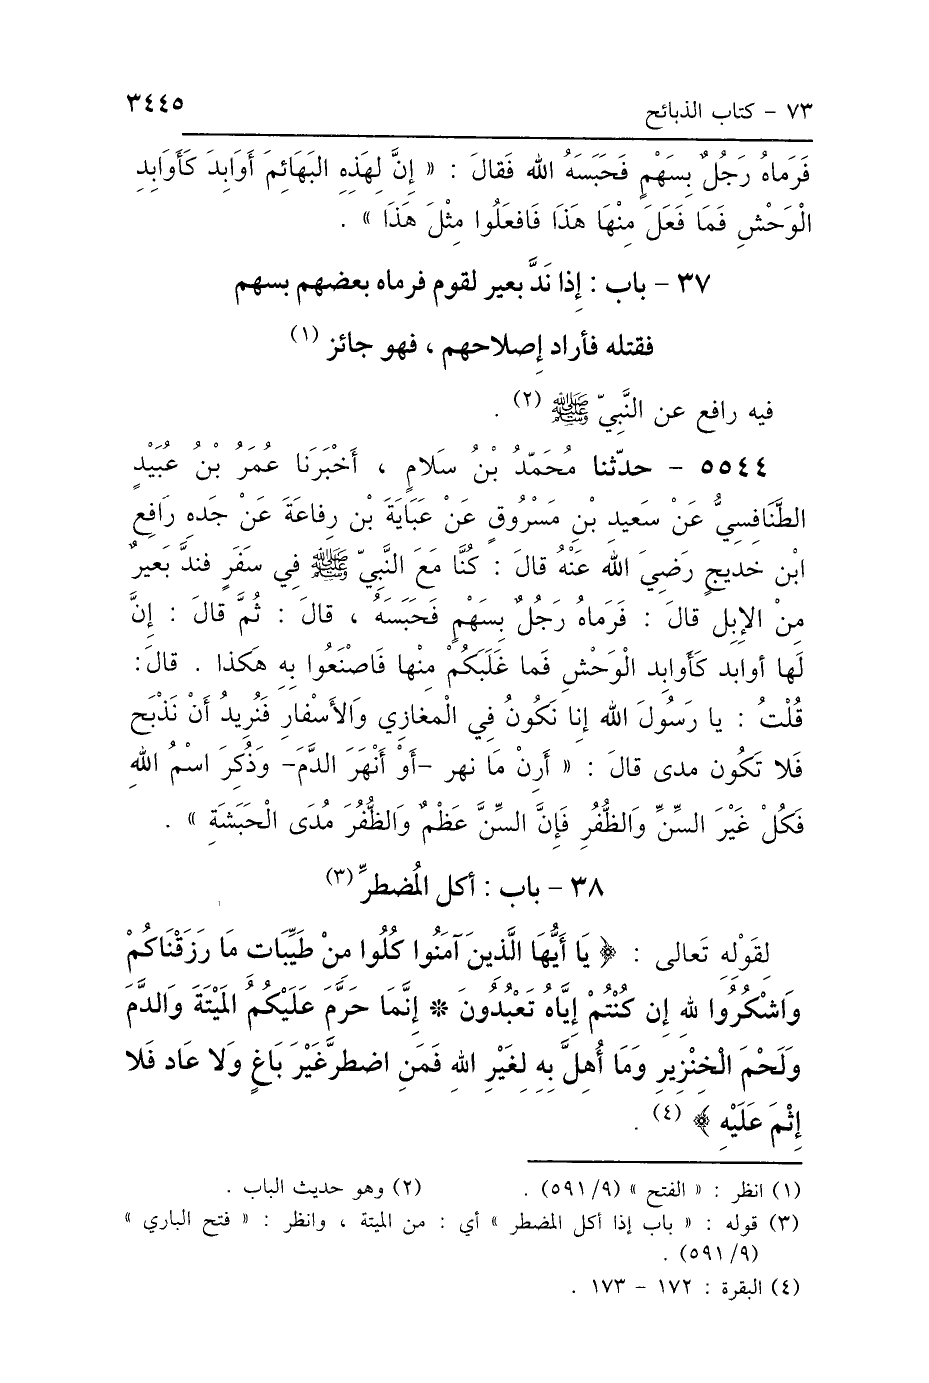 ٧٣ - كتاب الذبائح ٣٤٤٥
فَرَماهُ رَجُلٌ بِسَهْمٍ فَحَبَسَهُ الله فَقالَ : « إِنَّ لِهَذِهِ البَهَائِمَ أَوَابِدَ كَأَوَابِدِ
الْوَحْشِ فَمَا فَعَلَ مِنْهَا هَذَا فَافعَلُوا مِثْلَ هَذَا » .
٣٧ - باب : إِذا نَدَّ بعير لقوم فرماه بعضهم بسهم
فقتله فأراد إصلاحهم ، فهو جائز (١)
فيه رافع عن النَّبِيّ ﷺ (٢) .
٥٥٤٤ - حدّثنا مُحَمّدُ بْنُ سَلامٍ ، أَخْبَرَنا عُمَرُ بْنُ عُبَيْدٍ
الطَّنَافِسِيُّ عَنْ سَعِيدِ بْنِ مَسْرُوقٍ عَنْ عَبَايَةَ بْنِ رِفاعَةَ عَنْ جَدهِ رَافِعِ
ابْنِ خديجٍ رَضِيَ الله عَنْهُ قالَ : كُنَّا مَعَ النَّبِيِّ ﷺ فِي سفَرٍ فندَّ بَعيرٌ
مِنْ الإِبِلِ قالَ : فَرَماهُ رَجُلٌ بِسَهْمٍ فَحَبَسَهُ ، قالَ : ثُمَّ قالَ : إِنَّ
لَها أوابد كَأَوابِد الْوَحْشِ فَما غَلَبَكُمْ مِنْها فَاصْنَعُوا بِهِ هكذا . قالَ :
قُلْتُ : يا رَسُولَ الله إِنا نَكُونُ فِي الْمغازِي وَالأَسْفارِ فَنُرِيدُ أَنْ نَذْبَح
فَلا تَكُون مدى قالَ : « أَرِنْ مَا نهر -أَوْ أَنْهَرَ الدَّمَ- وَذُكِرَ اسْمُ اللهِ
فَكُلْ غَيْرَ السِّنِّ وَالظُّفُرِ فَإِنَّ السِّنَّ عَظْمٌ وَالظُّفُرَ مُدَى الْحَبَشَةِ » .
٣٨ - باب : أكل المُضطرِّ (٣)
لِقَوْلِهِ تَعالى : ﴿ يَا أَيُّهَا الَّذِينَ آمَنُوا كُلُوا مِنْ طَيِّبَات مَا رَزَقْنَاكُمْ
وَاشْكُرُوا لله إِن كُنْتُمْ إِيَّاه تَعْبُدُونَ * إِنَّمَا حَرَّمَ عَلَيْكُمُ الْمَيْتَةَ وَالدَّمَ
وَلَحْمَ الْخِنْزِيرِ وَمَا أُهِلَّ بِهِ لِغَيْرِ اللهِ فَمَنِ اضطرَّ غَيْرَ بَاغٍ وَلا عَاد فَلا
إِثْمَ عَلَيْهِ ﴾ (٤) .
(١) انظر : « الفتح » (٥٩١/٩) . (٢) وهو حديث الباب .
(٣) قوله : « باب إذا أكل المضطر » أي : من الميتة ، وانظر : « فتح الباري »
(٥٩١/٩) .
(٤) البقرة : ١٧٢ - ١٧٣ .